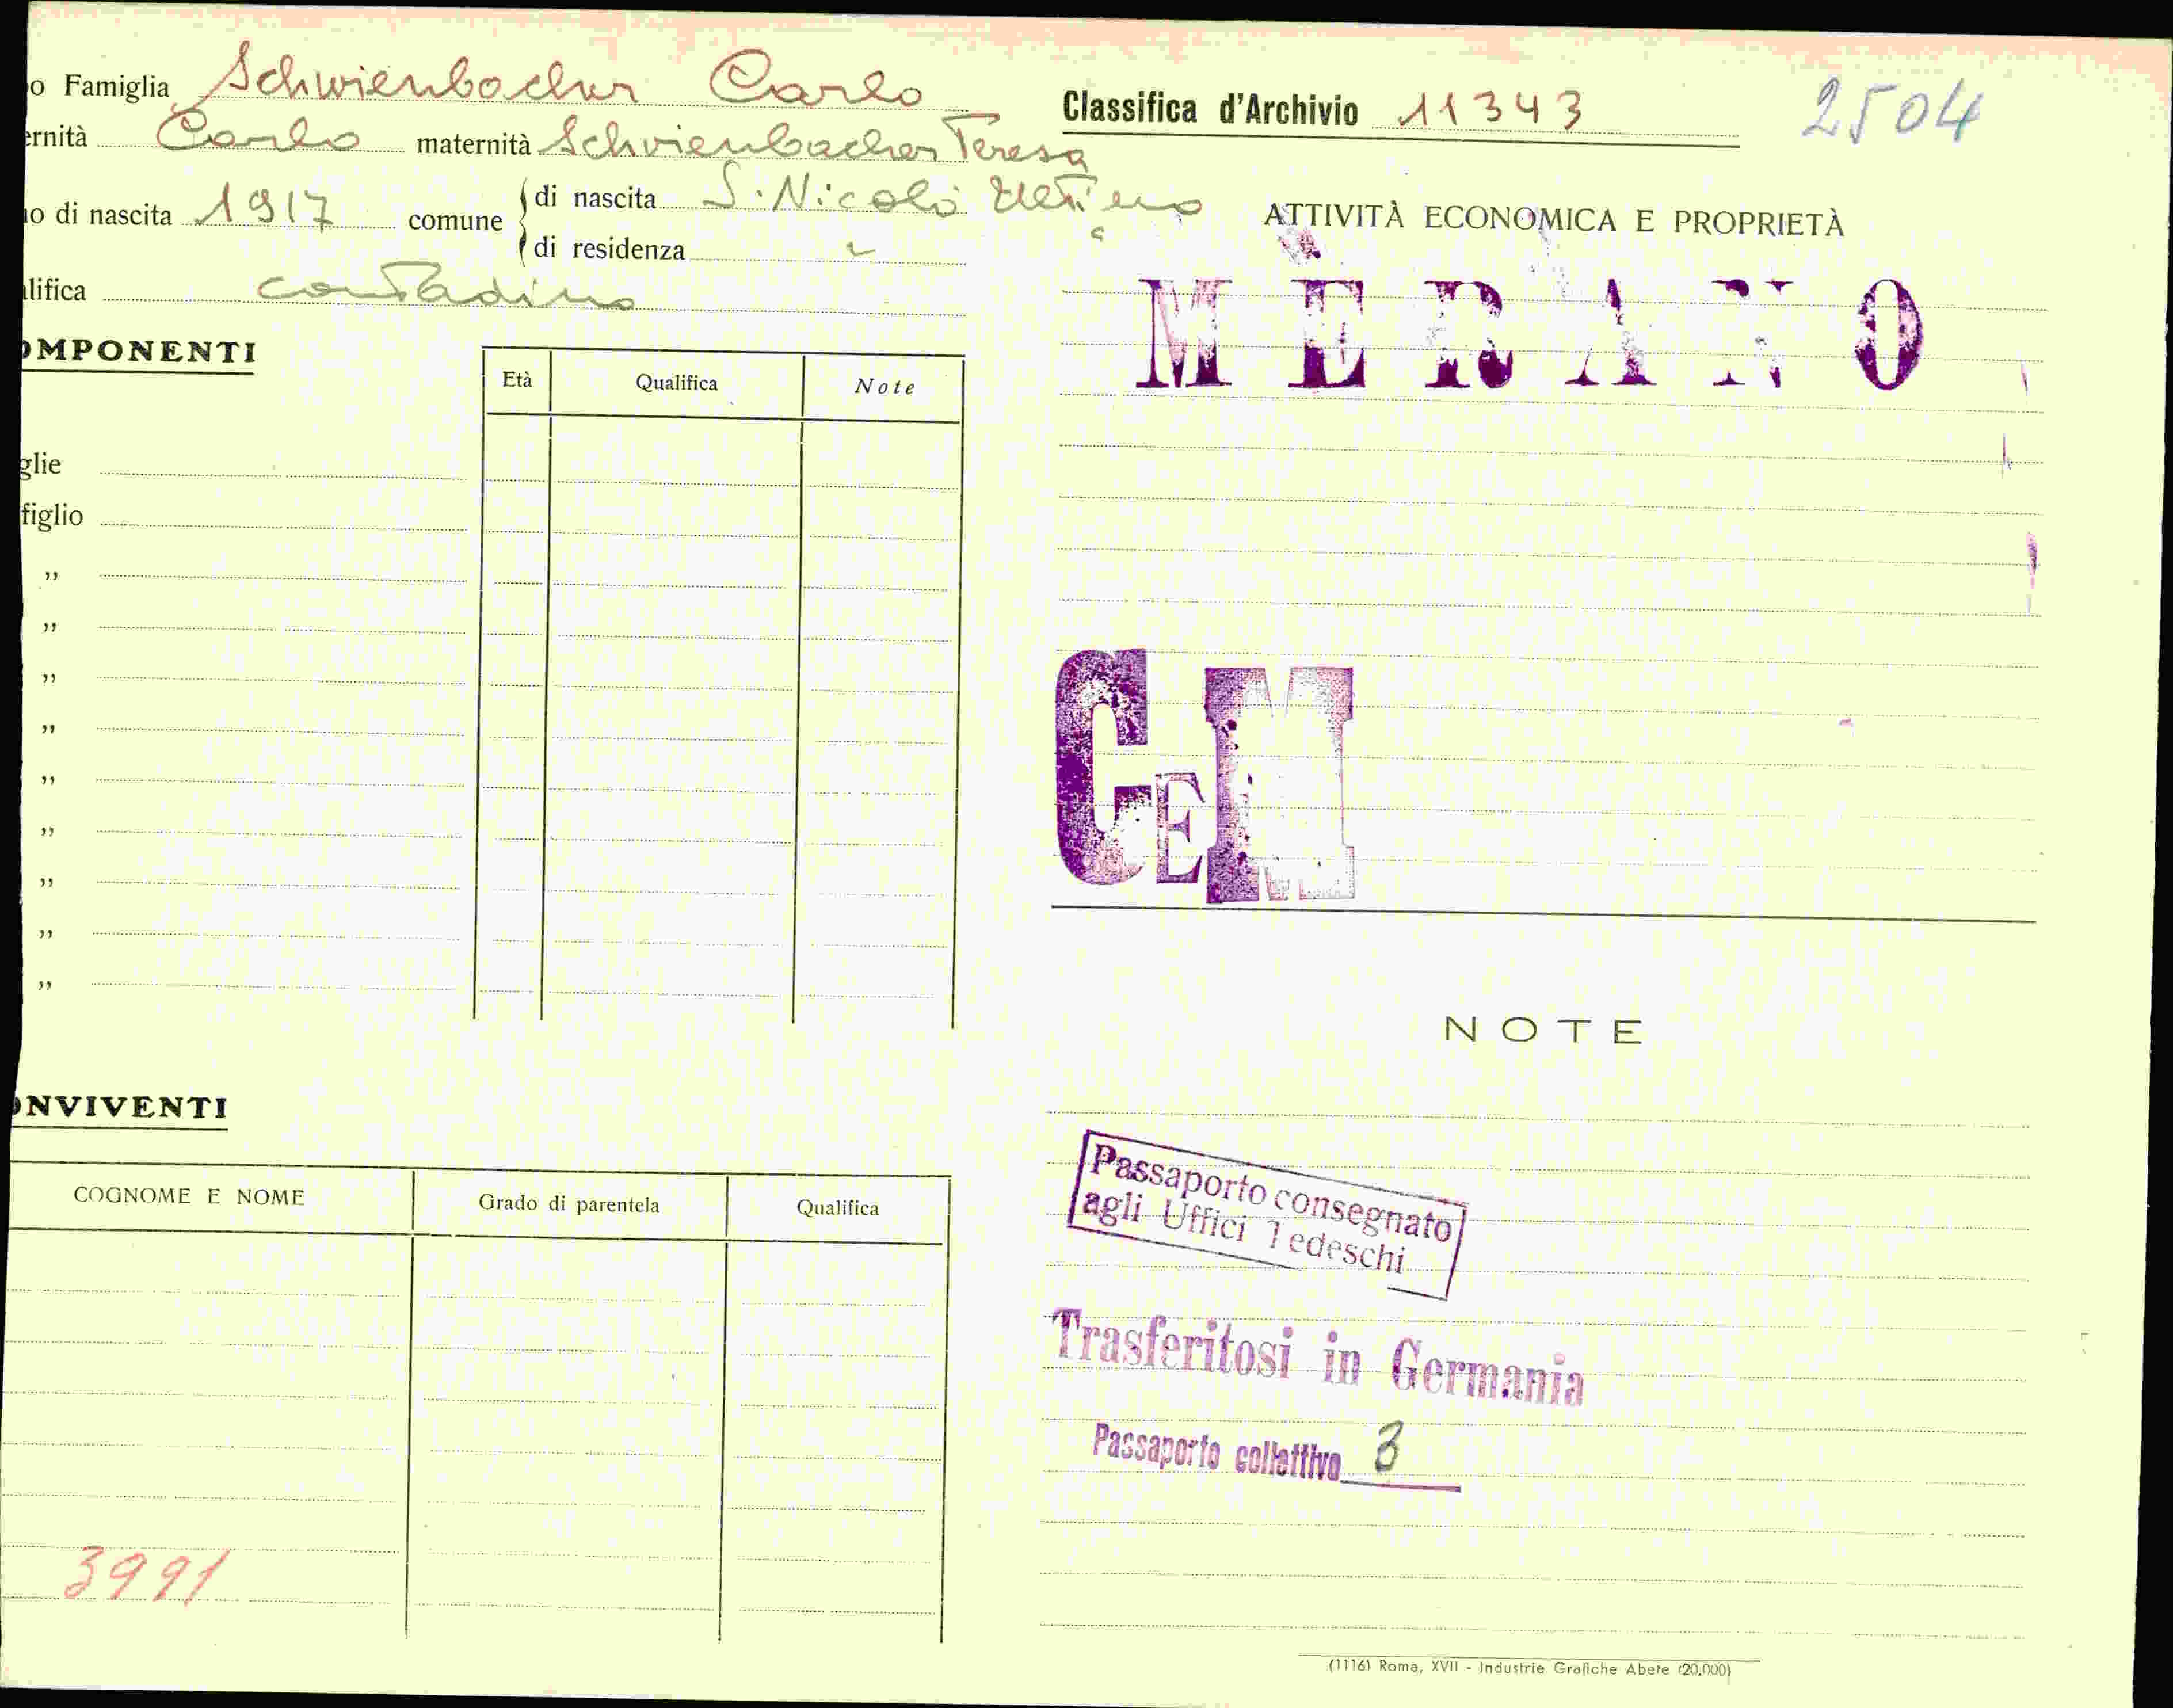 o Famiglia Schwienbacher Carlo
ernità Carlo maternità Schwienbacher Teresa
o di nascita 1917 comune di nascita S. Nicolò Ultimo
di residenza "
lifica contadino
OMPONENTI
Età Qualifica Note
glie
figlio
"
"
"
"
"
"
"
"
"
ONVIVENTI
COGNOME E NOME Grado di parentela Qualifica
3991
Classifica d'Archivio 11343 2504
ATTIVITÀ ECONOMICA E PROPRIETÀ
MERANO
CEM
NOTE
Passaporto consegnato
agli Uffici Tedeschi
Trasferitosi in Germania
Passaporto collettivo 3
(1116) Roma, XVII - Industrie Grafiche Abete (20.000)